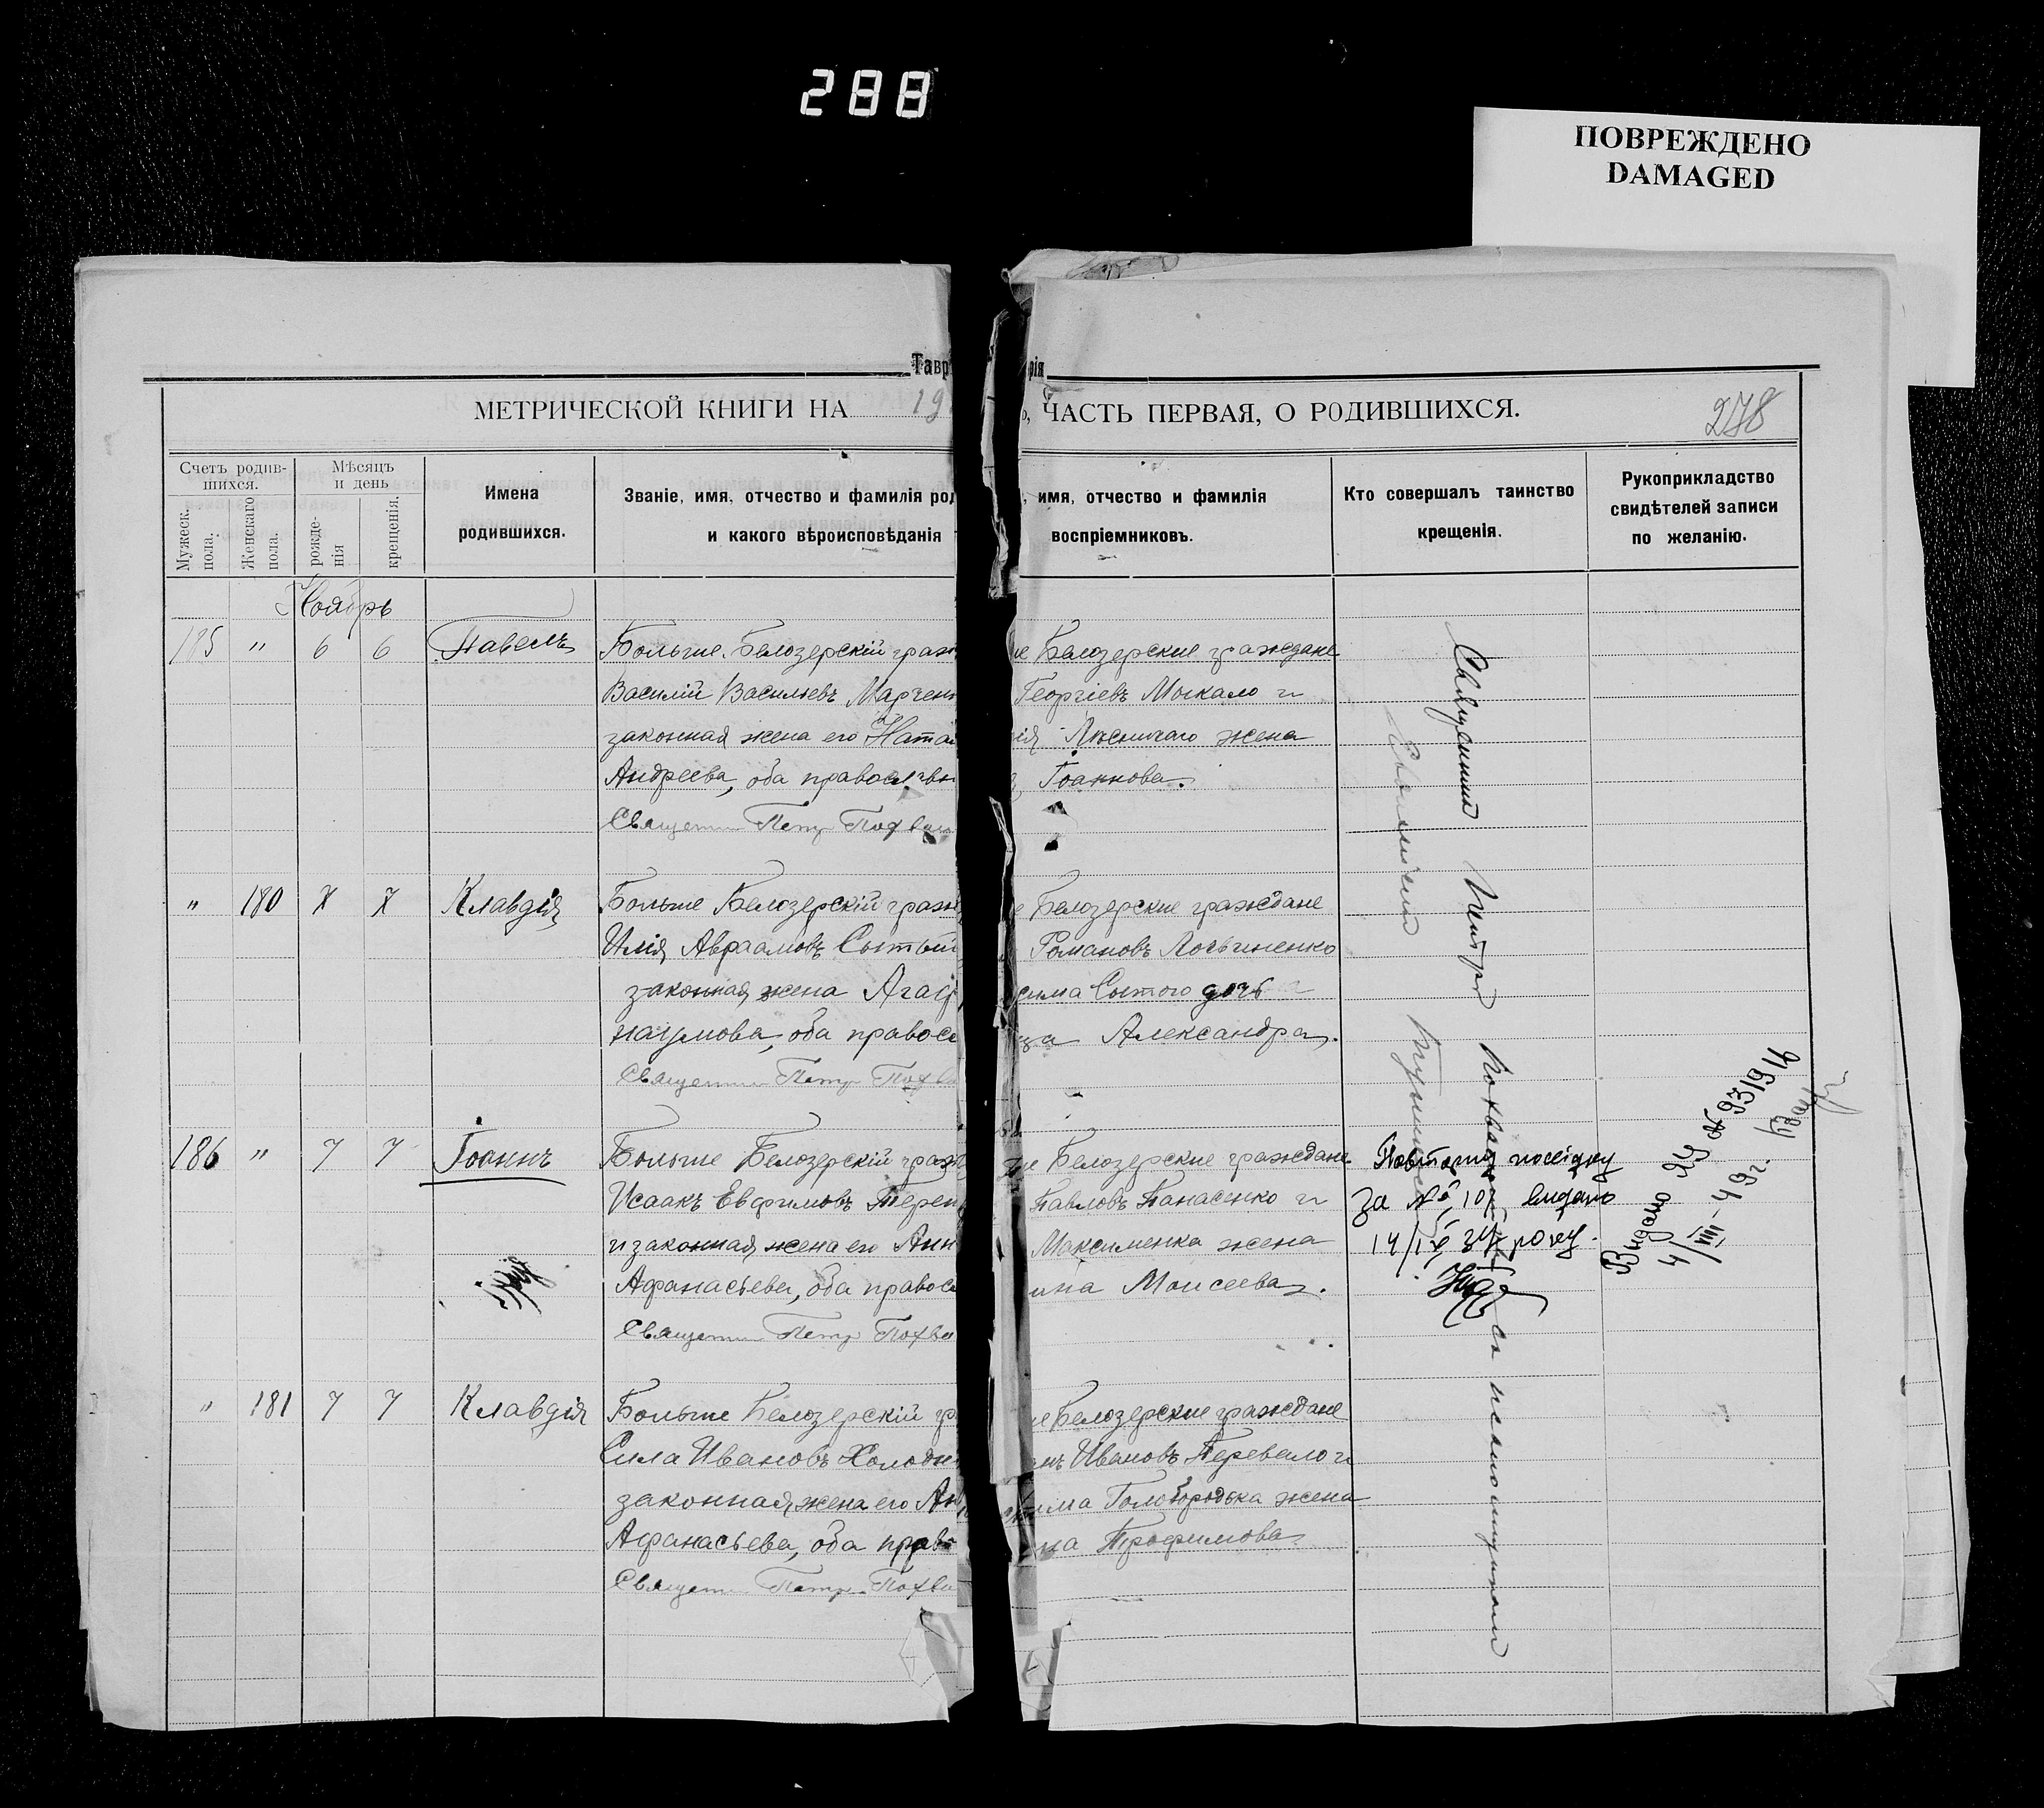 288
ПОВРЕЖДЕНО
DAMAGED
Тавр рія
МЕТРИЧЕСКОЙ КНИГИ НА 19
ЧАСТЬ ПЕРВАЯ, О РОДИВШИХСЯ.
278
Счетъ родив-
шихся.
Мужеск. пола.
Женскаго пола.
Мѣсяцъ
и день
рожде-
нія
крещенія.
Имена
родившихся.
Званіе, имя, отчество и фамилія род
и какого вѣроисповѣданія
, имя, отчество и фамилія
воспріемниковъ.
Кто совершалъ таинство
крещенія.
Рукоприкладство
свидѣтелей записи
по желанію.
Ноябрь
185 " 6 6 Павелъ
Больше Белозерскій граж
Василій Васильевъ Марченк
законная жена его Натал
Андреева, оба православн
Священ Петр Похвал
е Белозерские граждане
Георгіевъ Москало и
ія Лѣсничаго жена
Іоаннова.
" 180 7 7 Клавдія
Больше Белозерскій граж
Илія Авраамовъ Сытый
законная жена Агаф
наумова, оба правосл
Священ Петр Похва
е Белозерские граждане
Романовъ Логвиненко
сима Сытого дочь
Александра.
186 " 7 7 Іоаннъ
Больше Белозерскій граж
Исаакъ Евфимовъ Терещ
и законная жена его Анн
Афанасьева, оба правосл
Священ Петр Похва
е Белозерские граждане
Павловъ Панасенко и
Максименка жена
ина Моисеева.
Повторно посвідку
за № 107 видано
14/IX 34 року.
Видано ЯУ № 931916
4/VIII-49г.
" 181 7 7 Клавдія
Больше Белозерскій гр
Сила Ивановъ Холодн
законная жена его Ан
Афанасьева, оба прав
Священ Петр Похва
е Белозерские граждане
нъ Ивановъ Перевало и
има Голобородька жена
на Трофимова
Священникъ Петръ Похвал съ псаломщикомъ